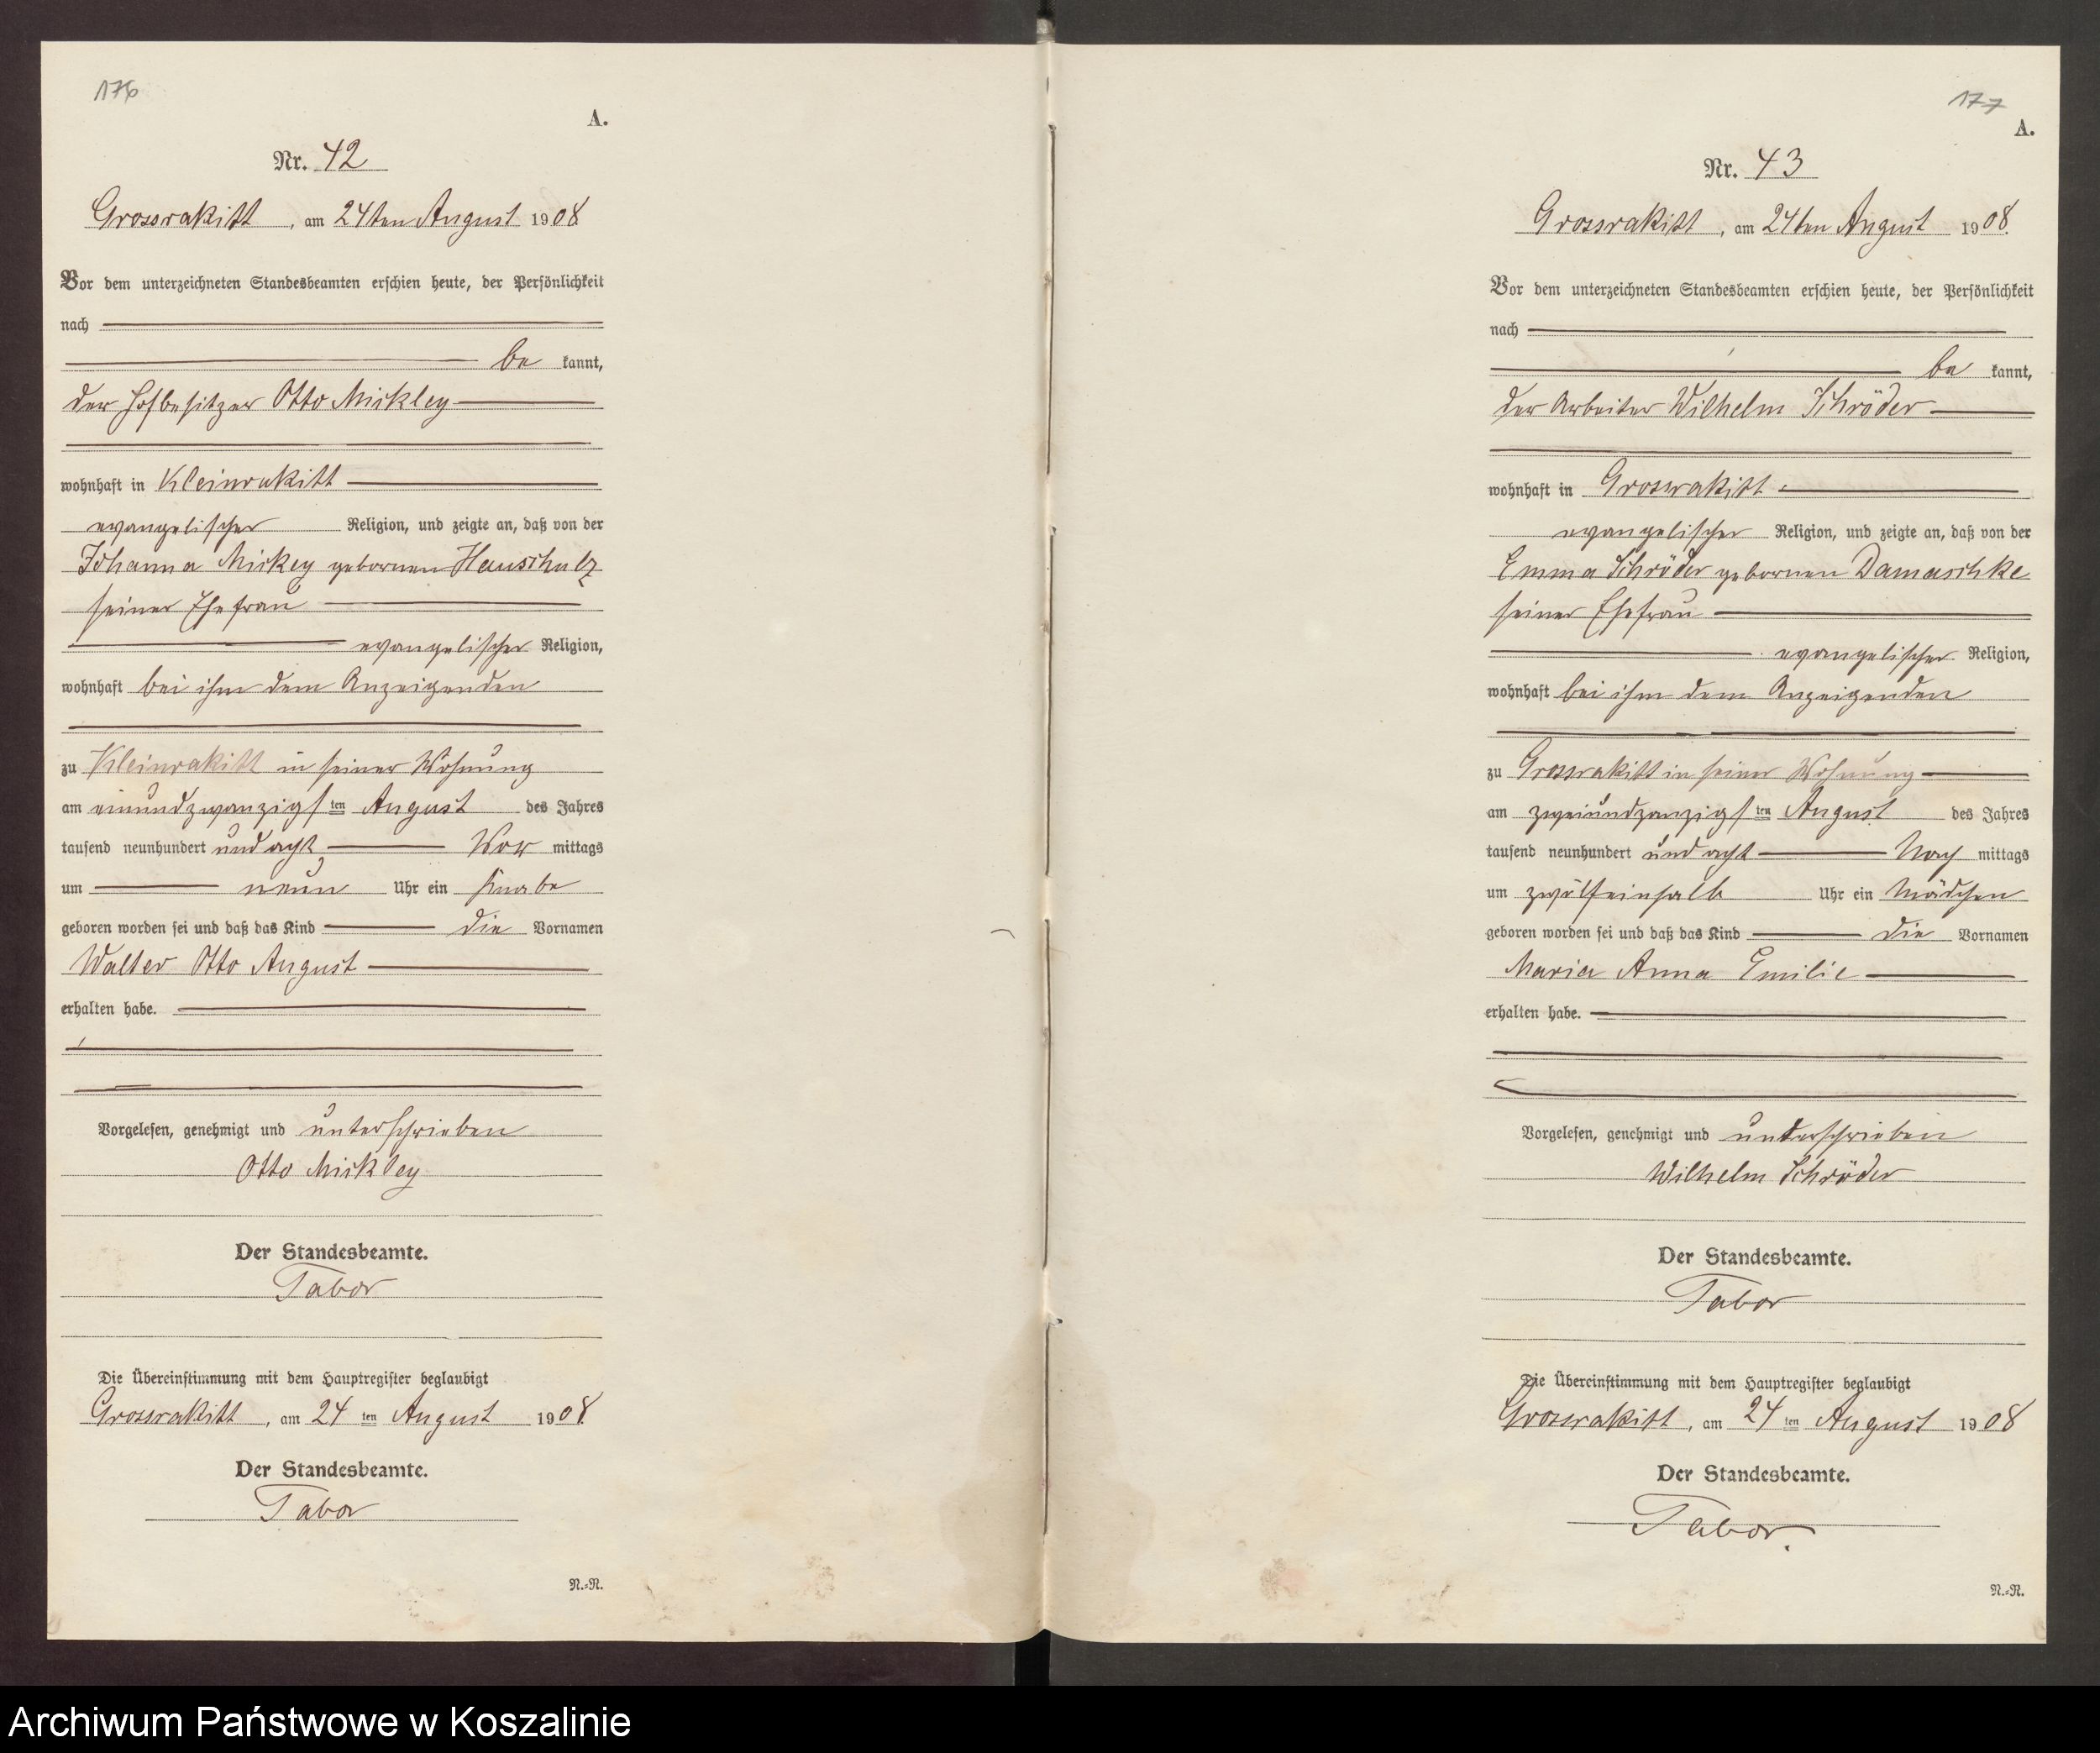 176
A.
Nr. 42
Grossrakitt, am 24ten August 1908.
Vor dem unterzeichneten Standesbeamten erschien heute, der Persönlichkeit
nach
be kannt,
der Hofbesitzer Otto Mickley
wohnhaft in Kleinrakitt
evangelischer Religion, und zeigte an, daß von der
Johanna Mickey gebornen Hauschulz
seiner Ehefrau
evangelischer Religion,
wohnhaft bei ihm dem Anzeigenden
zu Kleinrakitt in seiner Wohnung
am einundzwanzigsten August des Jahres
tausend neunhundert und acht Vor mittags
um neun Uhr ein Knabe
geboren worden sei und daß das Kind die Vornamen
Walter Otto August
erhalten habe.
Vorgelesen, genehmigt und unterschrieben
Otto Mickley
Der Standesbeamte.
Tabor
Die Übereinstimmung mit dem Hauptregister beglaubigt
Grossrakitt, am 24 ten August 1908.
Der Standesbeamte.
Tabor
N.=N.
177
A.
Nr. 43
Grossrakitt, am 24ten August 1908.
Vor dem unterzeichneten Standesbeamten erschien heute, der Persönlichkeit
nach
be kannt,
der Arbeiter Wilhelm Schröder
wohnhaft in Grossrakitt
evangelischer Religion, und zeigte an, daß von der
Emma Schröder gebornen Damaschke
seiner Ehefrau
evangelischer Religion,
wohnhaft bei ihm dem Anzeigenden
zu Grossrakitt in seiner Wohnung
am zweiundzanzigsten August des Jahres
tausend neunhundert und acht Nach mittags
um zwölfeinhalb Uhr ein Mädchen
geboren worden sei und daß das Kind die Vornamen
Maria Anna Emilie
erhalten habe.
Vorgelesen, genehmigt und unterschrieben
Wilhelm Schröder
Der Standesbeamte.
Tabor
Die Übereinstimmung mit dem Hauptregister beglaubigt
Grossrakitt, am 24 ten August 1908
Der Standesbeamte.
Tabor.
N.=N.
Archiwum Państwowe w Koszalinie